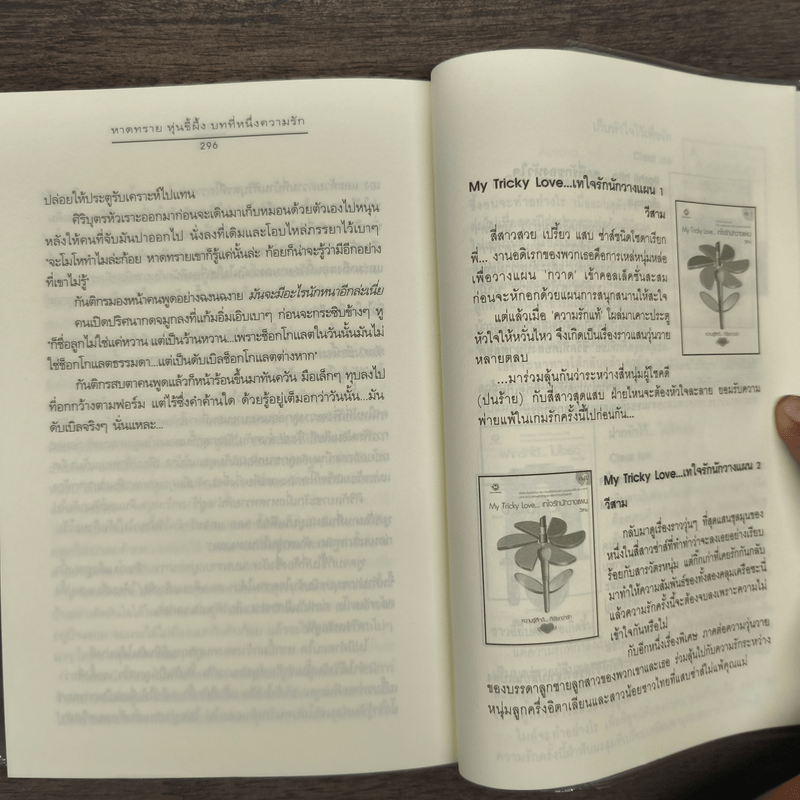 หาดทราย หุ่นขี้ผึ้ง บทที่หนึ่งความรัก
296
ปล่อยให้ประตูรับเคราะห์ไปแทน
ศิริบุตรหัวเราะออกมาก่อนจะเดินมาเก็บหมอนด้วยตัวเองไปหนุน
หลังให้คนที่จับมันปาออกไป นั่งลงที่เดิมและโอบไหล่ภรรยาไว้เบาๆ
'จะโมโหทำไมล่ะก้อย หาดทรายเขาก็รู้แค่นั้นล่ะ ก้อยก็น่าจะรู้ว่ามีอีกอย่าง
ที่เขาไม่รู้'
กันติกรมองหน้าคนพูดอย่างฉงนฉงาย มันจะมีอะไรนักหนาอีกล่ะเนี่ย
คนเปิดปริศนากดจมูกลงที่แก้มอิ่มเอิบเบาๆ ก่อนจะกระซิบข้างๆ หู
'ก็ชื่อลูกไม่ใช่แค่หวาน แต่เป็นว้านหวาน...เพราะช็อกโกแลตในวันนั้นมันไม่
ใช่ช็อกโกแลตธรรมดา...แต่เป็นดับเบิลช็อกโกแลตต่างหาก'
กันติกรสบตาคนพูดแล้วก็หน้าร้อนขึ้นมาทันควัน มือเล็กๆ ทุบลงไป
ที่อกกว้างตามฟอร์ม แต่ไร้ซึ่งคำค้านใด ด้วยรู้อยู่เต็มอกว่าวันนั้น...มัน
ดับเบิลจริงๆ นั่นแหละ...
My Tricky Love...เทใจรักนักวางแผน 1
วีสาม
สี่สาวสวย เปรี้ยว แสบ ซ่าส์ชนิดโซดาเรียก
พี่... งานอดิเรกของพวกเธอคือการเหล่หนุ่มหล่อ
เพื่อวางแผน 'กวาด' เข้าคอลเล็คชั่นสะสม
ก่อนจะหักอกด้วยแผนการสนุกสนานให้สะใจ
แต่แล้วเมื่อ 'ความรักแท้' โผล่มาเคาะประตู
หัวใจให้หวั่นไหว จึงเกิดเป็นเรื่องราวแสนวุ่นวาย
หลายตลบ
...มาร่วมลุ้นกันว่าระหว่างสี่หนุ่มผู้โชคดี
(ปนร้าย) กับสี่สาวสุดแสบ ฝ่ายไหนจะต้องหัวใจละลาย ยอมรับความ
พ่ายแพ้ในเกมรักครั้งนี้ไปก่อนกัน...
My Tricky Love... เทใจรักนักวางแผน
วีสาม
My Tricky Love...เทใจรักนักวางแผน 2
วีสาม
กลับมาดูเรื่องราววุ่นๆ ที่สุดแสนชุลมุนของ
หนึ่งในสี่สาวซ่าส์ที่ทำท่าว่าจะลงเอยอย่างเรียบ
ร้อยกับสารวัตรหนุ่ม แต่กิ๊กเก่าที่เคยรักกันกลับ
มาทำให้ความสัมพันธ์ของทั้งสองคลุมเครือซะนี่
แล้วความรักครั้งนี้จะต้องจบลงเพราะความไม่
เข้าใจกันหรือไม่
กับอีกหนึ่งเรื่องพิเศษ ภาคต่อความวุ่นวาย
ของบรรดาลูกชายลูกสาวของพวกเขาและเธอ ร่วมลุ้นไปกับความรักระหว่าง
หนุ่มลูกครึ่งอิตาเลียนและสาวน้อยชาวไทยที่แสบซ่าส์ไม่แพ้คุณแม่
My Tricky Love... เทใจรักนักวางแผน
วีสาม